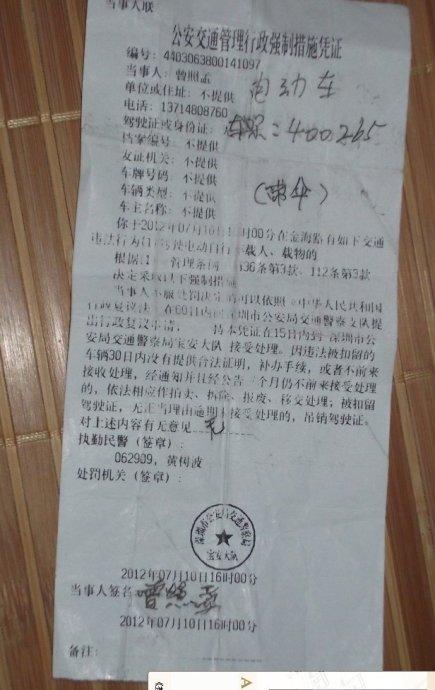 当事人联
公安交通管理行政强制措施凭证
编号: 4403063800141097
当事人: 曾照孟
电动车
单位或住址: 不提供
电话: 13714808760
驾驶证或身份证:
车架:400265
档案编号: 不提供
发证机关: 不提供
车牌号码: 不提供
车辆类型: 不提供
车主名称: 不提供
你于2012年07月10日16时00分在金海路有如下交通
违法行为(1)驾驶电动自行车载人、载物的
根据:(1 管理条例 36条第3款, 112条第3款
决定采取以下强制措施
当事人不服处罚决定的可以依照《中华人民共和国
行政复议法》在60日内向深圳市公安局交通警察支队提
出行政复议申请, 持本凭证在15日内到 深圳市公
安局交通警察局宝安大队 接受处理。因违法被扣留的
车辆30日内没有提供合法证明,补办手续,或者不前来
接收处理,经通知并且经公告三个月仍不前来接受处理
的,依法相应作拍卖、拆除、报废、移交处理;被扣留
驾驶证,无正当理由逾期未接受处理的,吊销驾驶证。
对上述内容有无意见 无
执勤民警(签章):
062909, 黄树波
处罚机关(签章):
深圳市公安局交通警察局
宝安大队
2012年07月10日16时00分
当事人签名 曾照孟
2012年07月10日16时00分
备注:
A